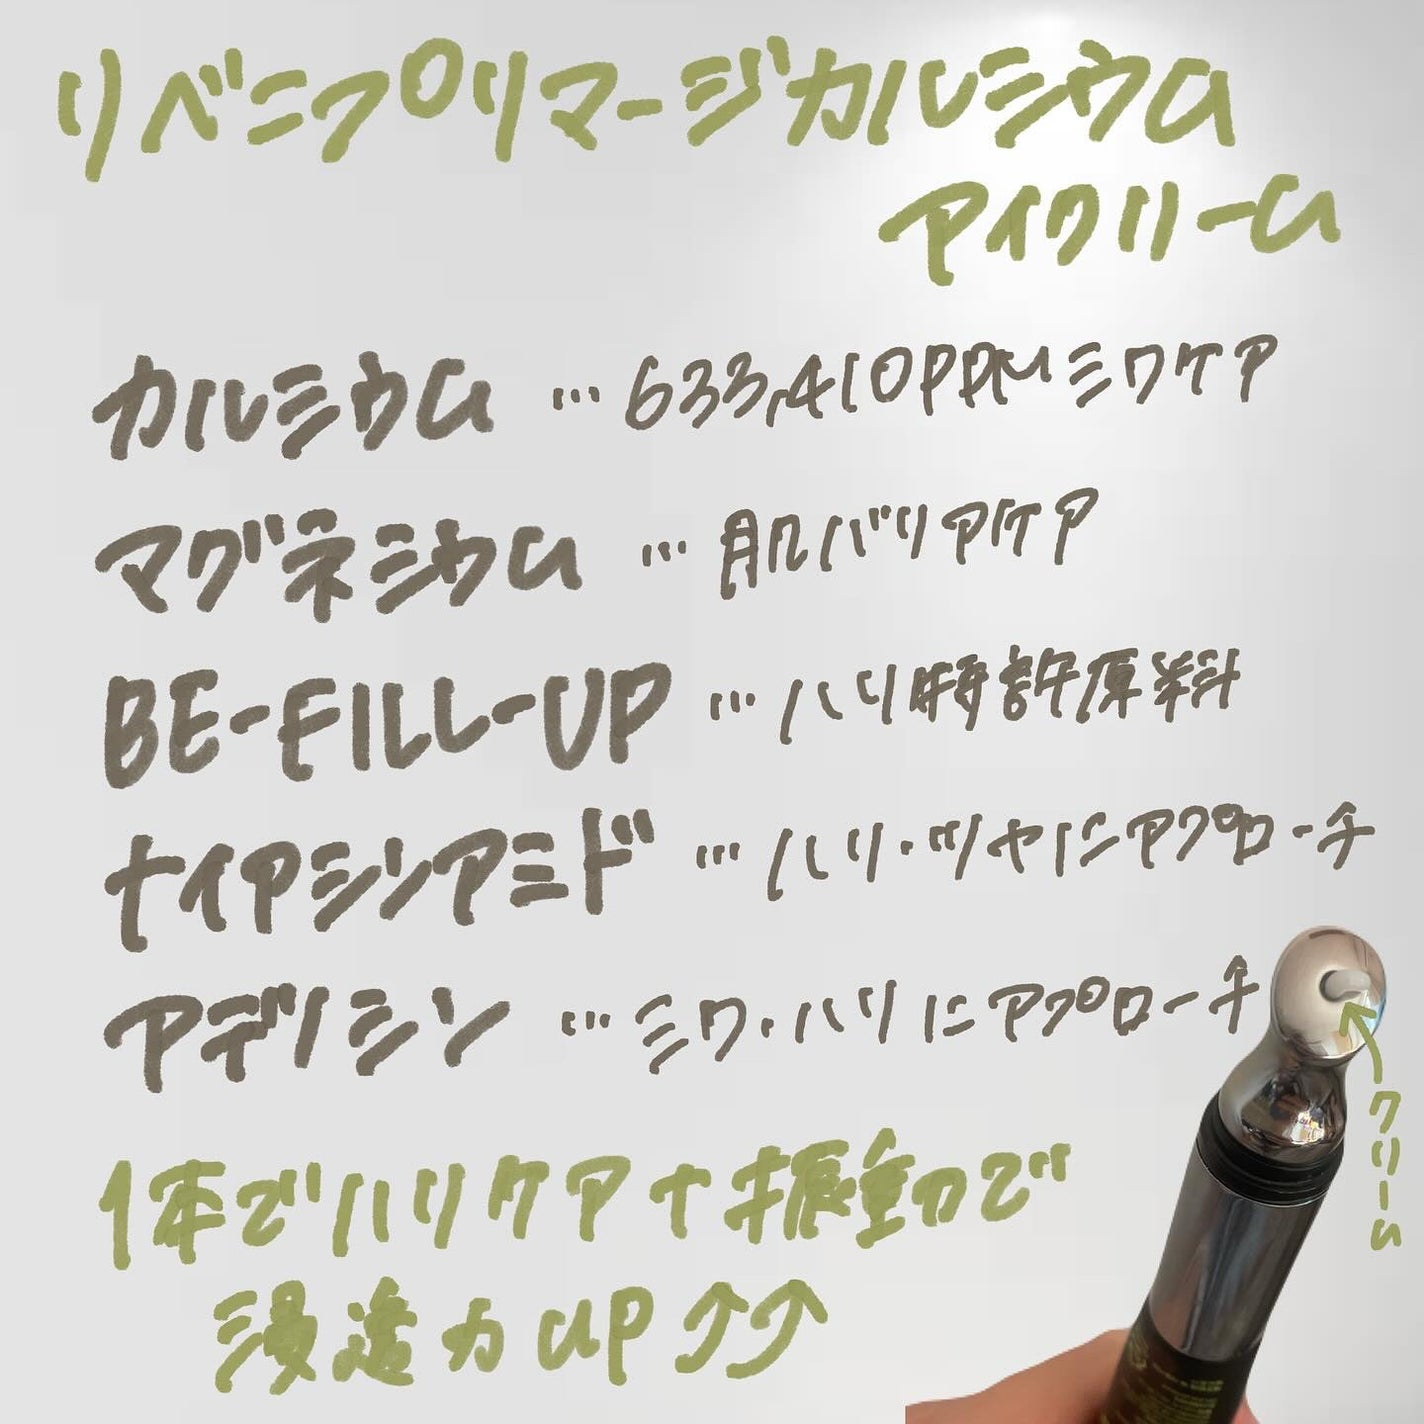 リベニプリマージカルシウム
アイクリーム
カルシウム … 633,410PPMシワケア
マグネシウム … 肌バリアケア
BE-FILL-UP … ハリ特許原料
ナイアシンアミド … ハリ・ツヤにアプローチ
アデノシン … シワ・ハリにアプローチ
クリーム
1本でハリケア+振動で
浸透力UP⤴⤴